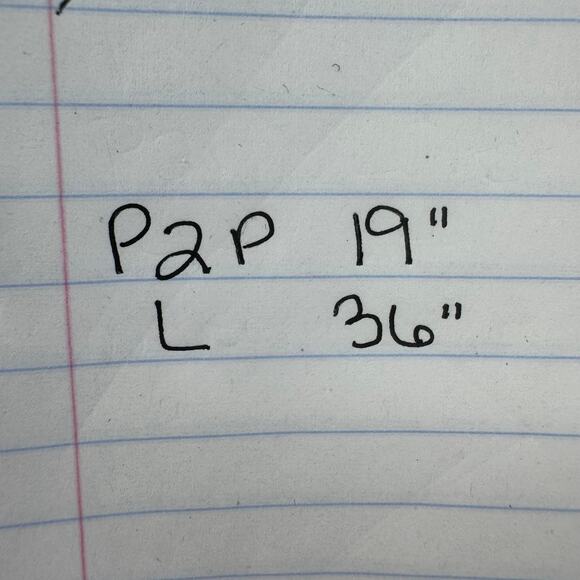 P2P 19"
L 36"